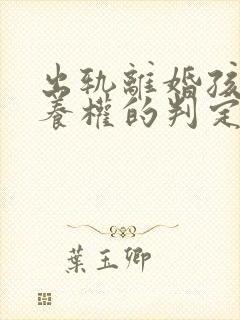 出轨離婚孩
養權的判定
葉玉卿